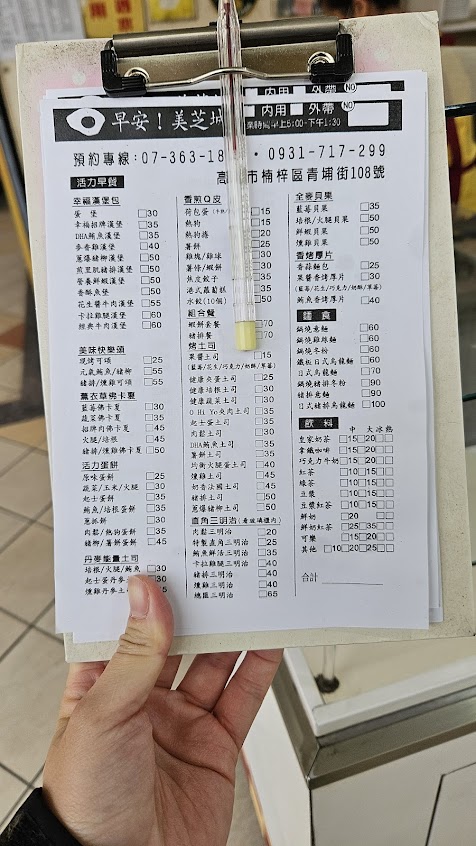 內用 外帶 NO
早安!美芝 內用 外帶 NO
業時間早上5:00-下午1:30
預約專線:07-363-18 · 0931-717-299
高 市楠梓區青埔街108號
活力早餐
幸福漢堡包
蛋堡 30
幸福招牌漢堡 35
DHA鮪魚漢堡 35
麥香雞漢堡 40
蔥爆豬柳漢堡 50
煎里肌豬排漢堡 50
營養鮮蝦漢堡 50
香酥魚堡 50
花生醬牛肉漢堡 55
卡拉雞腿漢堡 60
經典牛肉漢堡 60
美味快樂頌
現烤可頌 25
元氣鮪魚/豬柳 55
豬排/燻雞可頌 55
薰衣草佛卡夏
藍莓佛卡夏 30
蔬菜佛卡夏 35
招牌肉佛卡夏 45
火腿/培根 45
豬排/燻雞佛卡夏 50
活力蛋餅
原味蛋餅 25
蔬菜/玉米/火腿 30
起士蛋餅 30
鮪魚/培根蛋餅 35
蔥抓餅 30
肉鬆/熱狗蛋餅 35
豬柳/薯餅蛋餅 45
丹麥能量土司
培根/火腿/鮪魚 30
起士蛋丹麥 30
燻雞丹麥土 35
香煎Q皮
荷包蛋 15
熱狗 15
熱狗捲 20
薯餅
雞塊/雞球
薯條/蝦餅
焦皮餃子
港式蘿蔔糕
水餃(10個)
組合餐
蝦餅套餐 70
豬排餐 70
烤土司
果醬土司
(藍莓/花生/巧克力/奶酥/草莓)
健康夾蛋土司 25
健康培根土司 30
健康蔬菜土司 30
O Hi Yo夾肉土司 35
起士蛋土司 30
肉鬆土司 30
DHA鮪魚土司 35
薯餅土司 35
均衡火腿蛋土司 40
燻雞土司 45
奶香法國土司 45
豬排土司 50
蔥爆豬柳土司 50
直角三明治(看玻璃櫃內)
肉鬆三明治 20
特製直角三明治 25
鮪魚鮮活三明治 35
卡拉雞腿三明治 40
豬排三明治 40
燻雞三明治 40
總匯三明治 65
全麥貝果
藍莓貝果 35
培根/火腿貝果 50
鮮蝦貝果 50
燻雞貝果 50
香烤厚片
香蒜麵包 25
果醬香烤厚片 30
(藍莓/花生/巧克力/奶酥/草莓)
鮪魚香烤厚片 40
麵食
鍋燒意麵 60
鍋燒雞絲麵 60
鍋燒冬粉 60
鐵板日式烏龍麵 60
日式烏龍麵 70
鍋燒豬排冬粉 90
豬排意麵 90
日式豬排烏龍麵 100
飲料
中 大 冰 熱
皇家奶茶 15 20
拿鐵咖啡 15 20
巧克力牛奶 15 20
紅茶 10 15
綠茶 10 15
豆漿 10 15
豆漿紅茶 10 15
鮮奶 20
鮮奶紅茶 25 35
可樂 15 20
其他 10 20 25
合計